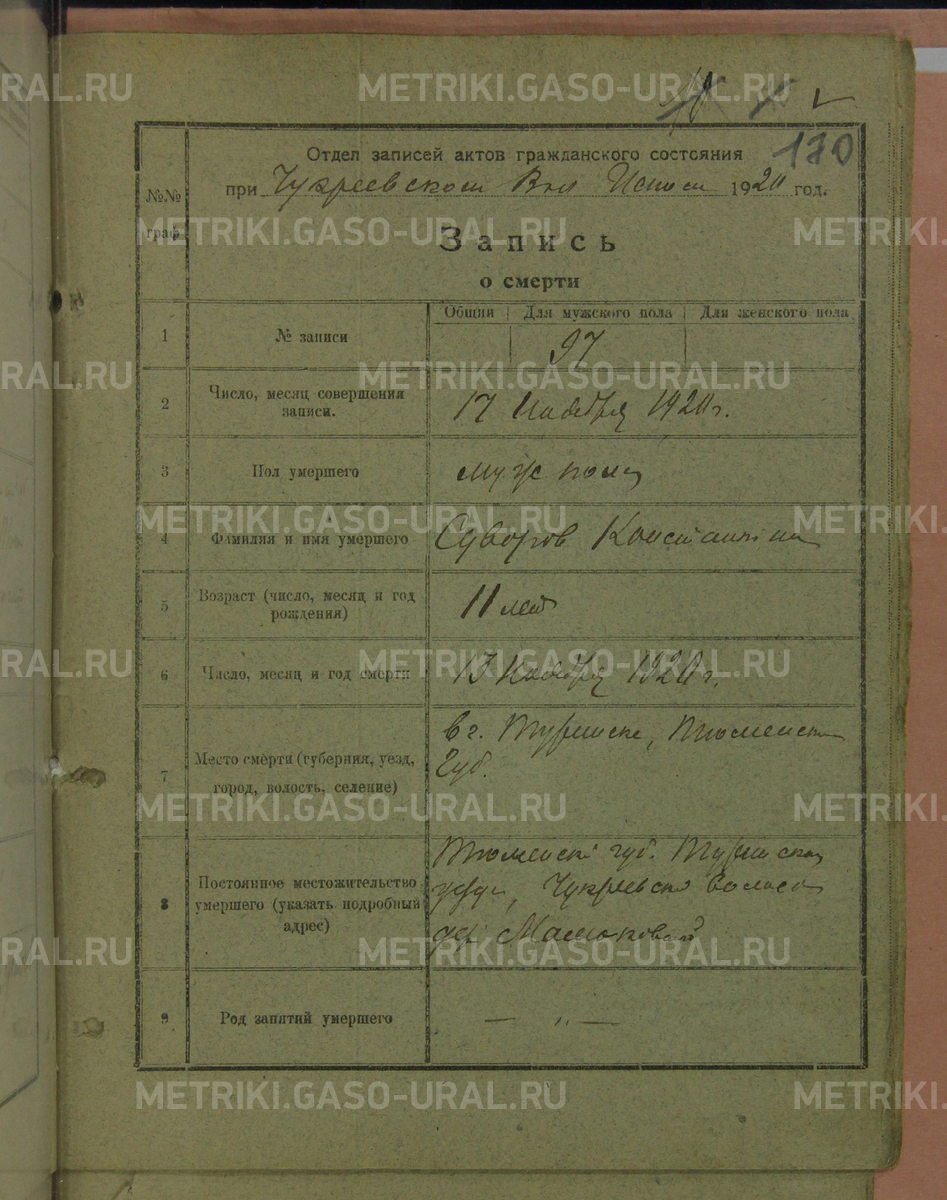 170
Отдел записей актов гражданского состояния
при Чукреевском Вол Исполк 1920 год.
№№ граф
Запись
о смерти
Общий Для мужского пола Для женского пола
1 № записи 97
2 Число, месяц совершения записи. 17 Ноября 1920 г.
3 Пол умершего муж пола
4 Фамилия и имя умершего Суворов Константин
5 Возраст (число, месяц и год рождения) 11 лет
6 Число, месяц и год смерти Ноября 1920 г.
7 Место смерти (губерния, уезд, город, волость, селение) в г. Туринске, Тюменск
Губ.
8 Постоянное местожительство умершего (указать подробный адрес) Тюменск губ. Туринск
Чукреевско Волости
дер
9 Род занятий умершего — „ —
METRIKI.GASO-URAL.RU